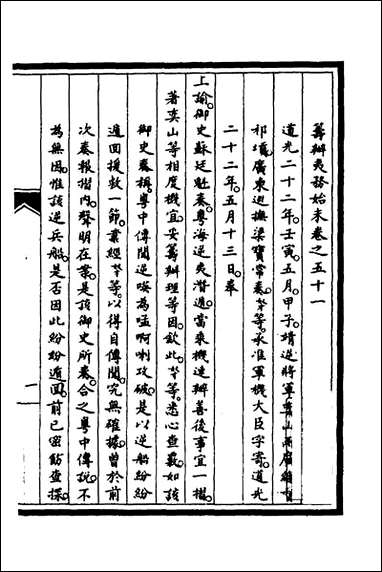 籌辦夷務始末卷之五十一
道光二十二年壬寅五月甲子靖逆將軍奕山兩廣總督
祁𡎴廣東巡撫梁寶常奏奴才等承准軍機大臣字寄道光
二十二年五月十三日奉
上諭御史蘇廷魁奏粵海逆夷潛遁當乘機速辦善後事宜一摺
著奕山等相度機宜妥籌辦理等因欽此奴才等悉心查覈如該
御史奏稱粵中傳聞逆㗆為嗌啊喇攻破是以逆船紛紛
遁回援救一節業經奴才等以得自傳聞究無確據曾於前
次奏報摺內聲明在案是該御史所奏合之粵中傳說不
為無因惟該逆兵船是否因此紛紛遁回前已密飭查探
一